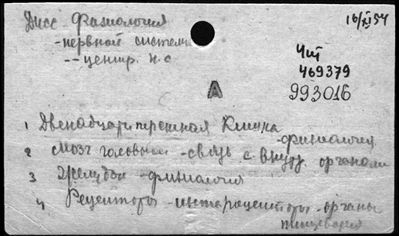 Дисс. Физиология
16/XI 54
-нервной системы
-- центр. н.с
Чит
469379
993016
А
1 Двенадцатиперстная кишка -физиология
2 Мозг головной -связь с внутр. органами
3 Желудок -физиология
4 Рецепторы -интерорецепторы -органы
пищеварения